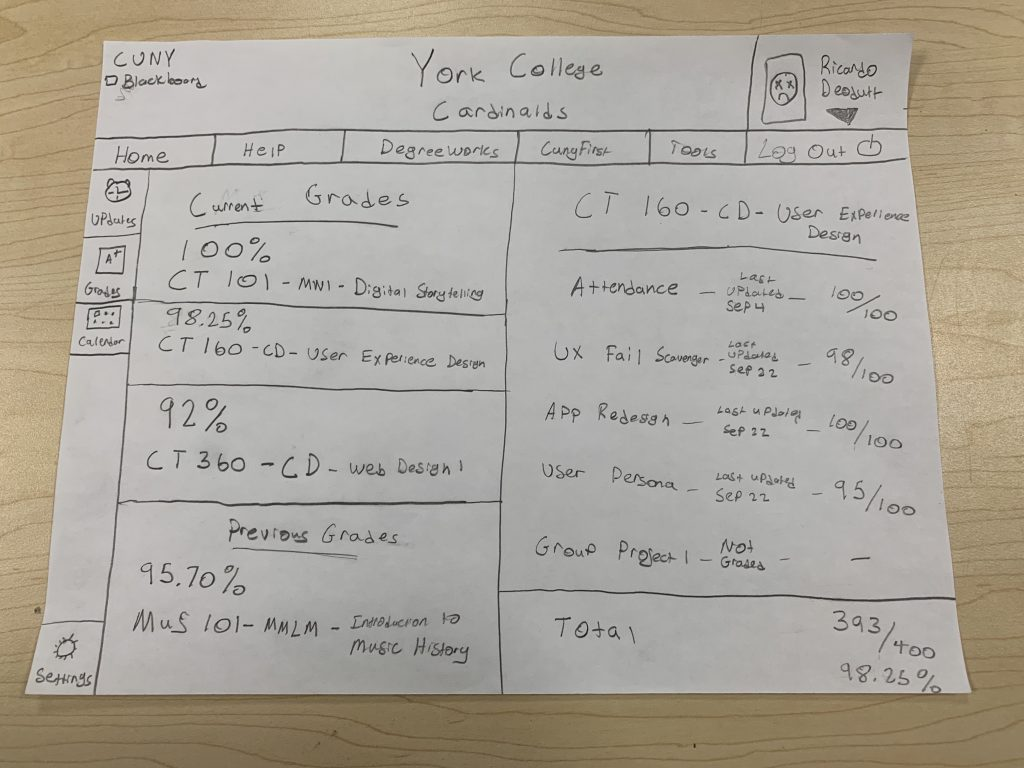 CUNY
Blackboard
York College
Cardinalds
Ricardo
Deodutt
Home
Help
DegreeWorks
CunyFirst
Tools
Log Out
Updates
A+
Grades
Calendar
Settings
Current Grades
100%
CT 101 - MW1 - Digital Storytelling
98.25%
CT 160 - CD - User Experience Design
92%
CT 360 - CD - Web Design 1
Previous Grades
95.70%
MUS 101 - MMLM - Introduction to
Music History
CT 160 - CD - User Experience
Design
Attendance - Last Updated Sep 4 - 100/100
UX Fail Scavenger - Last Updated Sep 22 - 98/100
App Redesign - Last Updated Sep 22 - 100/100
User Persona - Last Updated Sep 22 - 95/100
Group Project 1 - Not Graded - -
Total 393/400
98.25%